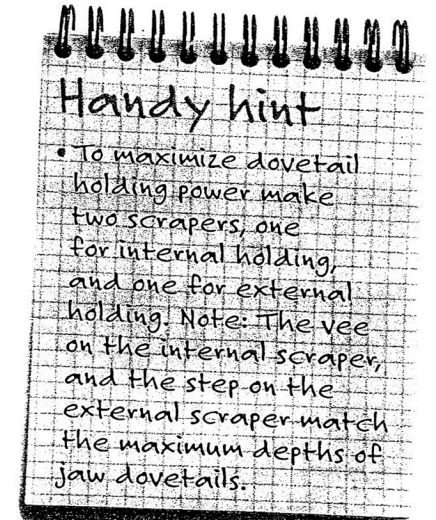 Handy hint
• To maximize dovetail
holding power make
two scrapers, one
for internal holding,
and one for external
holding. Note: The vee
on the internal scraper,
and the step on the
external scraper match
the maximum depths of
jaw dovetails.